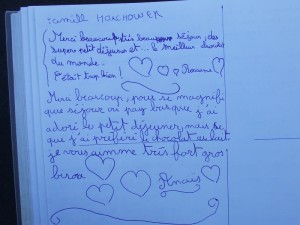 Famille HAICHOWER
Merci beaucoup très beau séjour, des
supers petit déjeuner et... le meilleur chocolat
du monde.
C'était trop bien! Roxanne
Merci beaucoup, pour se magnifi
que séjour au pay basque j'ai
adoré le petit déjeuner, mais se
que j'ai préféré le chocolat au lait
je vous aimme très fort gros
bisou
Anaïs